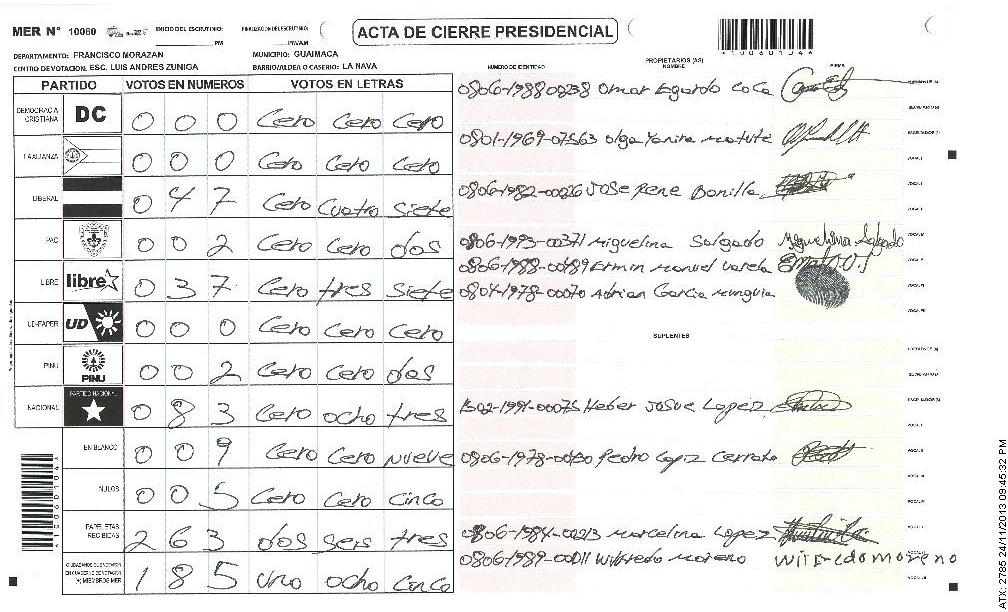 MER N° 10060 INICIO DEL ESCRUTINIO: PM FINALIZACION DEL ESCRUTINIO: PM/AM
ACTA DE CIERRE PRESIDENCIAL
*100601044*
DEPARTAMENTO: FRANCISCO MORAZAN MUNICIPIO: GUAIMACA
CENTRO DE VOTACION: ESC. LUIS ANDRES ZUNIGA BARRIO/ALDEA O CASERIO: LA NAVA
PARTIDO VOTOS EN NUMEROS VOTOS EN LETRAS
DEMOCRACIA CRISTIANA DC 0 0 0 Cero Cero Cero
F.AXLDANZA 0 0 0 Cero Cero Cero
LIBERAL 0 4 7 Cero Cuatro siete
PAC 0 0 2 Cero Cero dos
LIBRE libre 0 3 7 Cero tres siete
UD-FAPER UD 0 0 0 Cero Cero Cero
PINU PINU 0 0 2 Cero Cero dos
NACIONAL PARTIDO NACIONAL 0 8 3 Cero ocho tres
EN BLANCO 0 0 9 Cero Cero nueve
NULOS 0 0 5 Cero Cero Cinco
PAPELETAS RECIBIDAS 2 6 3 dos seis tres
(+) MIEMBROS MER 1 8 5 uno ocho Cinco
*100601044*
NUMERO DE IDENTIDAD PROPIETARIOS (AS) NOMBRE FIRMA
0806-1988-00238 Omar Egardo Coca
0801-1969-07563 olga Yanira matute
0806-1982-00026 Jose Rene Bonilla
0806-1993-00371 miguelina Salgado Miguelina Salgado
0806-1988-00489 Ermin manuel varela
0804-1978-00070 Adrian Garcia munguia
SUPLENTES
1502-1991-00075 Heber Josue Lopez
Pedro Lopez Cerrato
marcelina Lopez
0806-1989-00011 wilfredo moreno
ATX: 2785 24/11/2013 09:45:32 PM